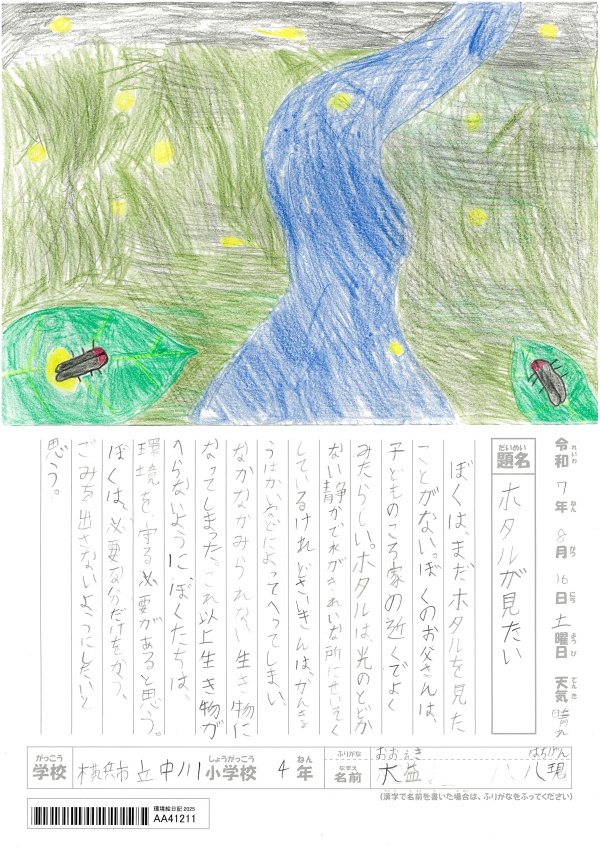 令和7年8月16日土曜日 天気 晴れ
れいわ ねん がつ にち ようび てんき
だいめい
題名 ホタルが見たい
ぼくは、まだホタルを見た
ことがない。ぼくのお父さんは、
子どものころ家の近くでよく
みたらしい。ホタルは光のとどか
ない静かで水がきれいな所にせいそく
しているけれどさいきんは、かんきょ
うはかいなどによってへってしまい、
なかなかみられない生き物に
なってしまった。これ以上生き物が
へらないようにぼくたちは、
環境を守る必要があると思う。
ぼくは、必要な分だけをかう、
ごみを出さないようにしたいと
思う。
がっこう しょうがっこう ねん
学校 横浜市立中川小学校 4年
ふりがな おおえき はちげん
なまえ
名前 大益 八現
(漢字で名前を書いた場合は、ふりがなをふってください)
環境絵日記 2025
AA41211